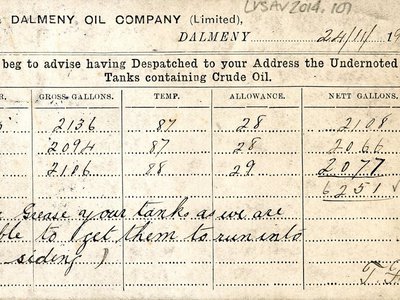 DALMENY OIL COMPANY (Limited),
LVSAV 2014.107
DALMENY 24/11/19
beg to advise having Despatched to your Address the Undernoted
Tanks containing Crude Oil.
R. GROSS GALLONS. TEMP. ALLOWANCE. NETT GALLONS.
2136 87 28 2108
2094 87 28 2066
2106 88 29 2077
6251
Grease your tanks as we are
ble to get them to run into
siding )